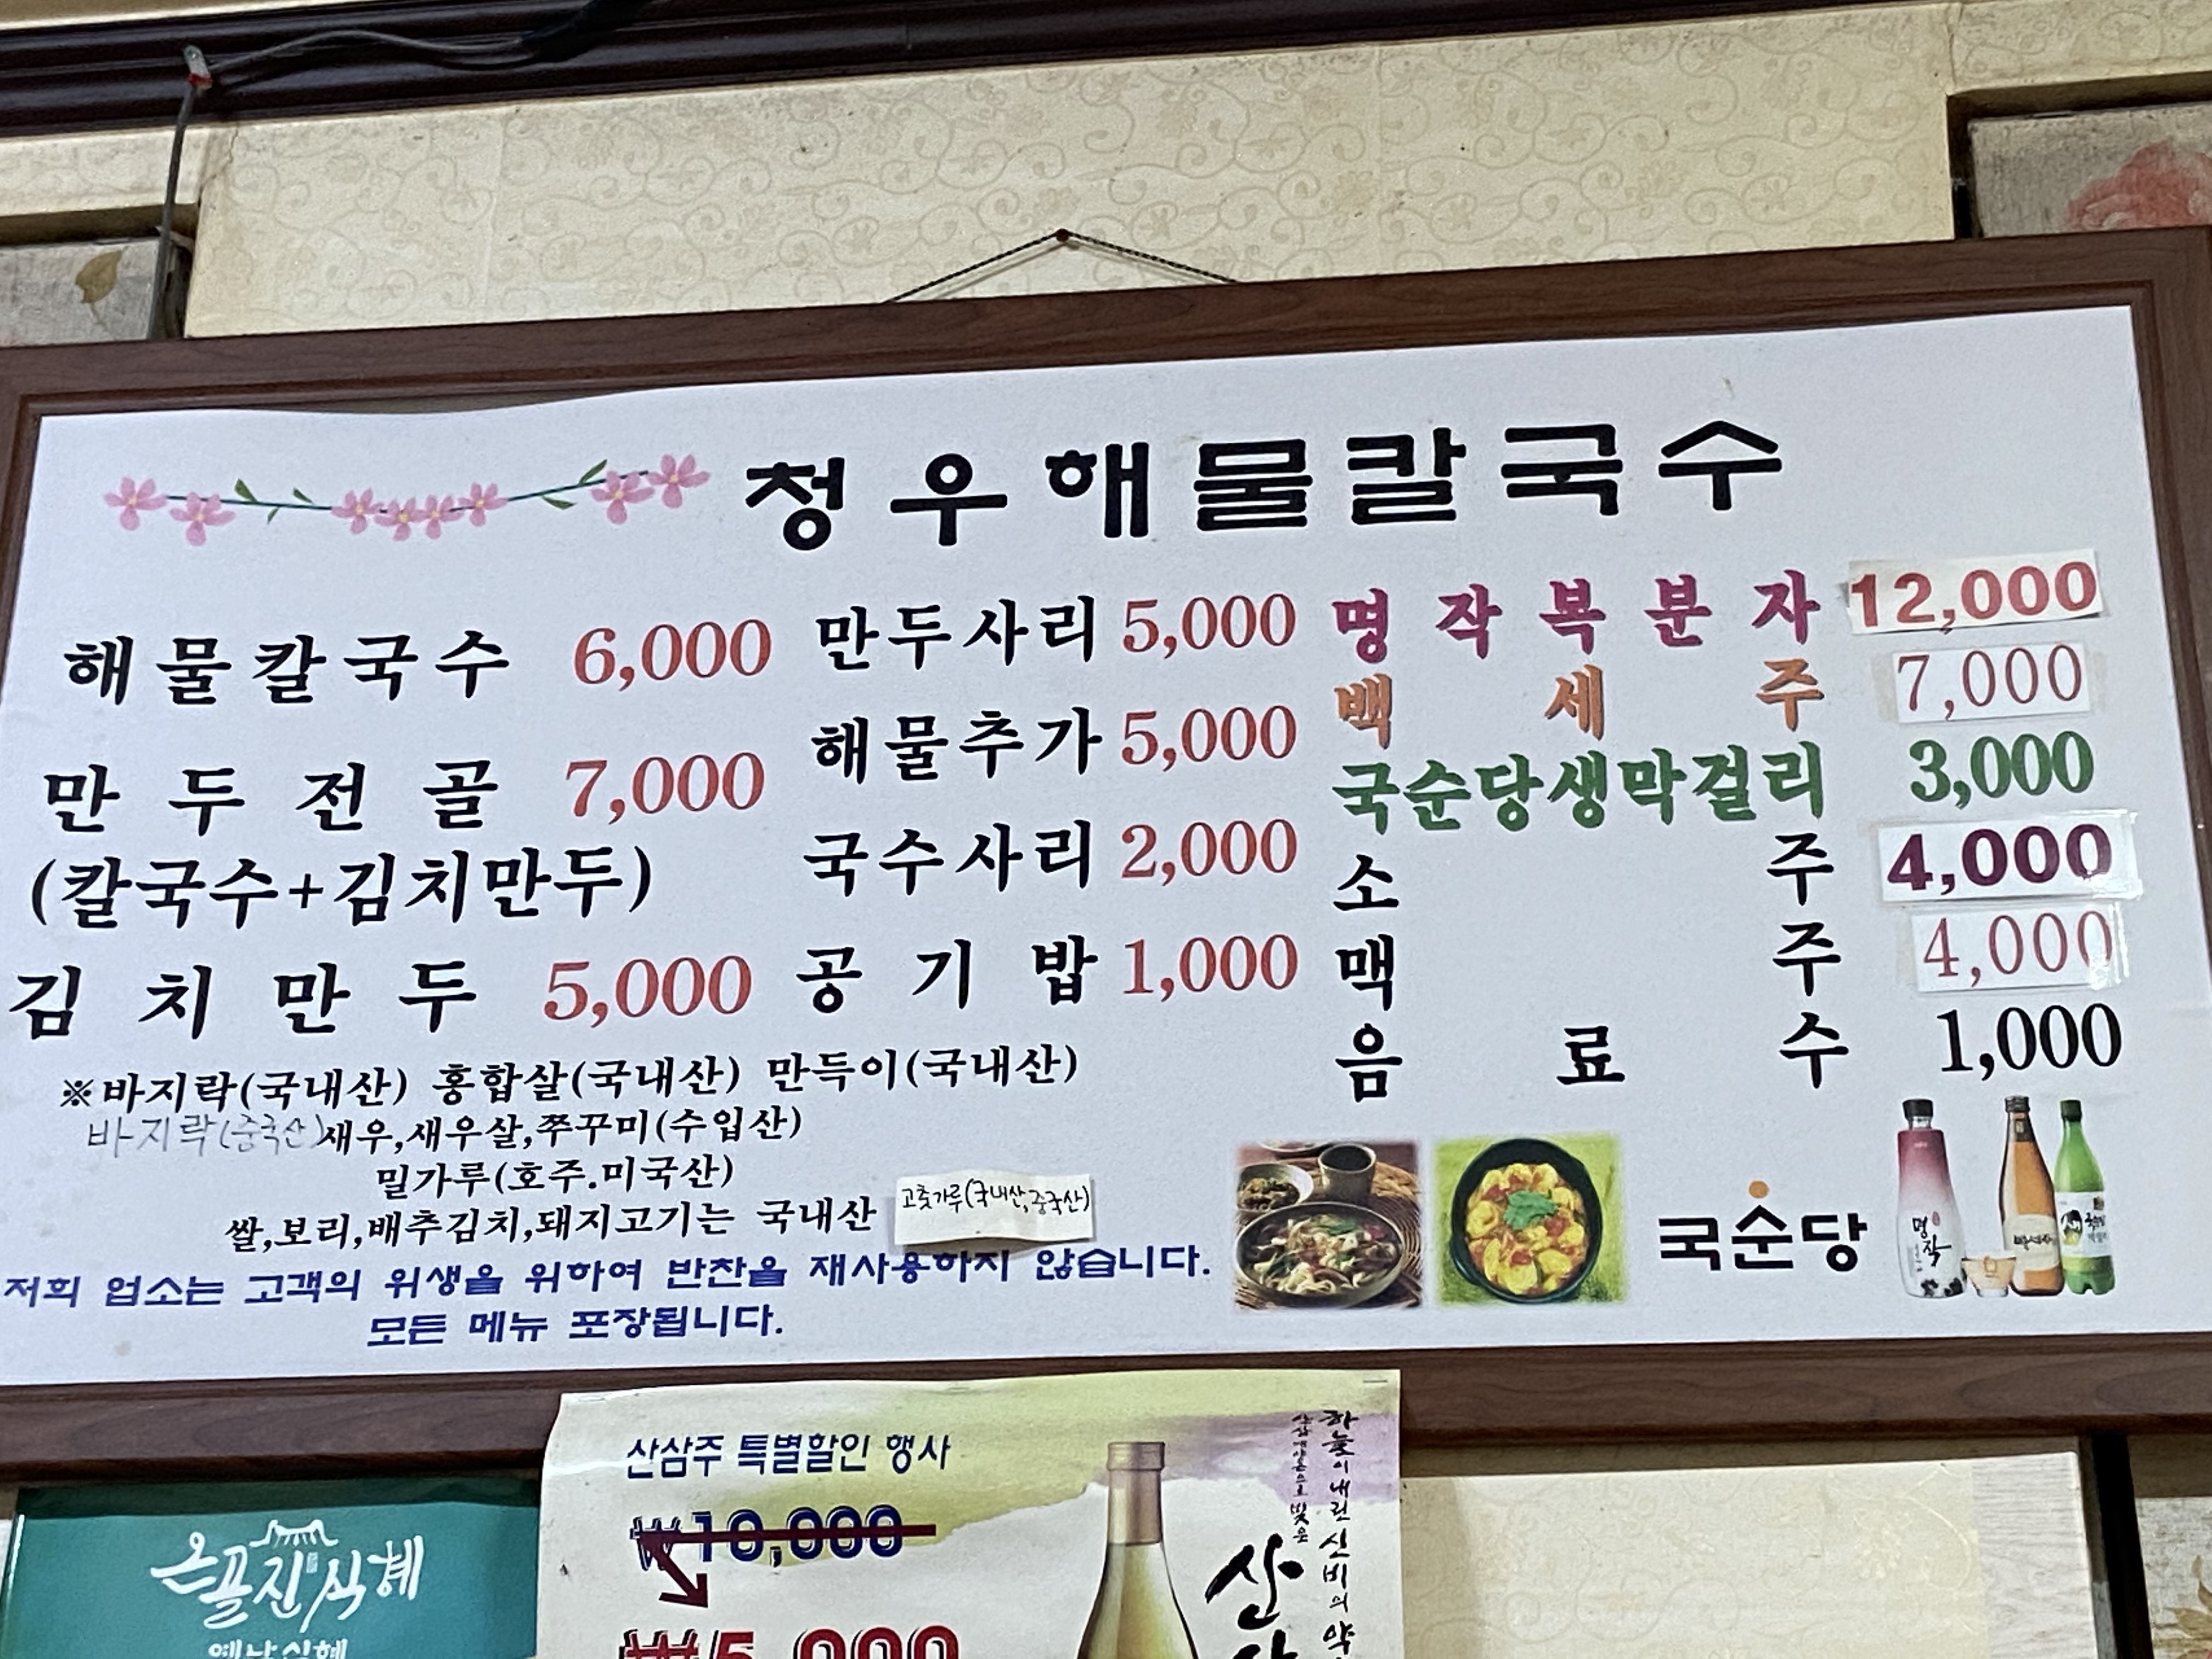 청우해물칼국수
해물칼국수 6,000
만두전골 7,000
(칼국수+김치만두)
김치만두 5,000
만두사리 5,000
해물추가 5,000
국수사리 2,000
공기밥 1,000
명작복분자 12,000
백세주 7,000
국순당생막걸리 3,000
소주 4,000
맥주 4,000
음료수 1,000
※바지락(국내산) 홍합살(국내산) 만득이(국내산)
바지락(중국산)새우,새우살,쭈꾸미(수입산)
밀가루(호주.미국산)
쌀,보리,배추김치,돼지고기는 국내산 고춧가루(국내산,중국산)
저희 업소는 고객의 위생을 위하여 반찬을 재사용하지 않습니다.
모든 메뉴 포장됩니다.
국순당
명작
산삼주 특별할인 행사
₩10,000
₩5,000
하늘이 내린 신비의 약